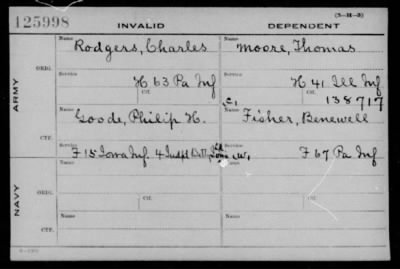 125998 INVALID DEPENDENT (3-H-3)
Name Name
Rodgers, Charles Moore, Thomas
ORIG. Service Service
H 63 Pa Inf H 41 Ill Inf
ARMY Ctf. Ctf.
138717
Name C, Name
Goode, Philip H. Fisher, Benewell
CTF. Service Service
F 15 Iowa Inf. 4 F 67 Pa Inf
NAVY
ORIG. Name Name
Ctf. Ctf.
CTF. Name Name